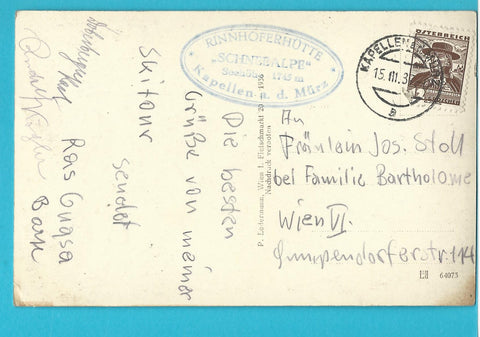 RINNHOFERHÜTTE
"SCHNEEALPE"
Seehöhe 1745 m
Kapellen a. d. Mürz
KAPELLEN
15.III.3
a
ÖSTERREICH
Die besten
Grüße von meiner
Skitour sendet
P. Ledermann, Wien I. Fleischmarkt 20 1936
Nachdruck verboten
An
Fräulein Jos. Stoll
bei Familie Bartholome
Wien VI.
Gumpendorferstr. 114
64075